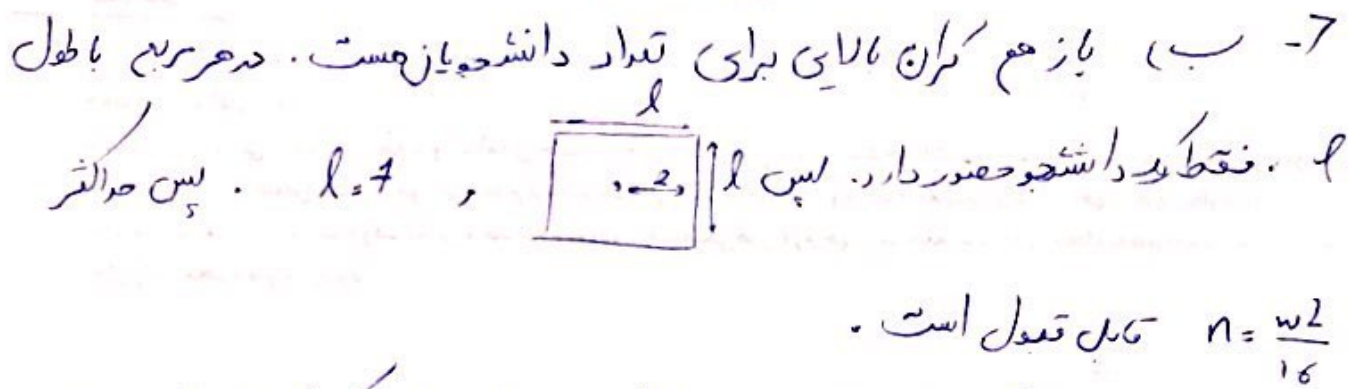 7- ب) باز هم کران بالایی برای تعداد دانشجویان هست. در هر مربع با طول
l. فقط یک دانشجو حضور دارد. پس l l 2 و l=4. پس حداکثر
n = wL/16 قابل قبول است.